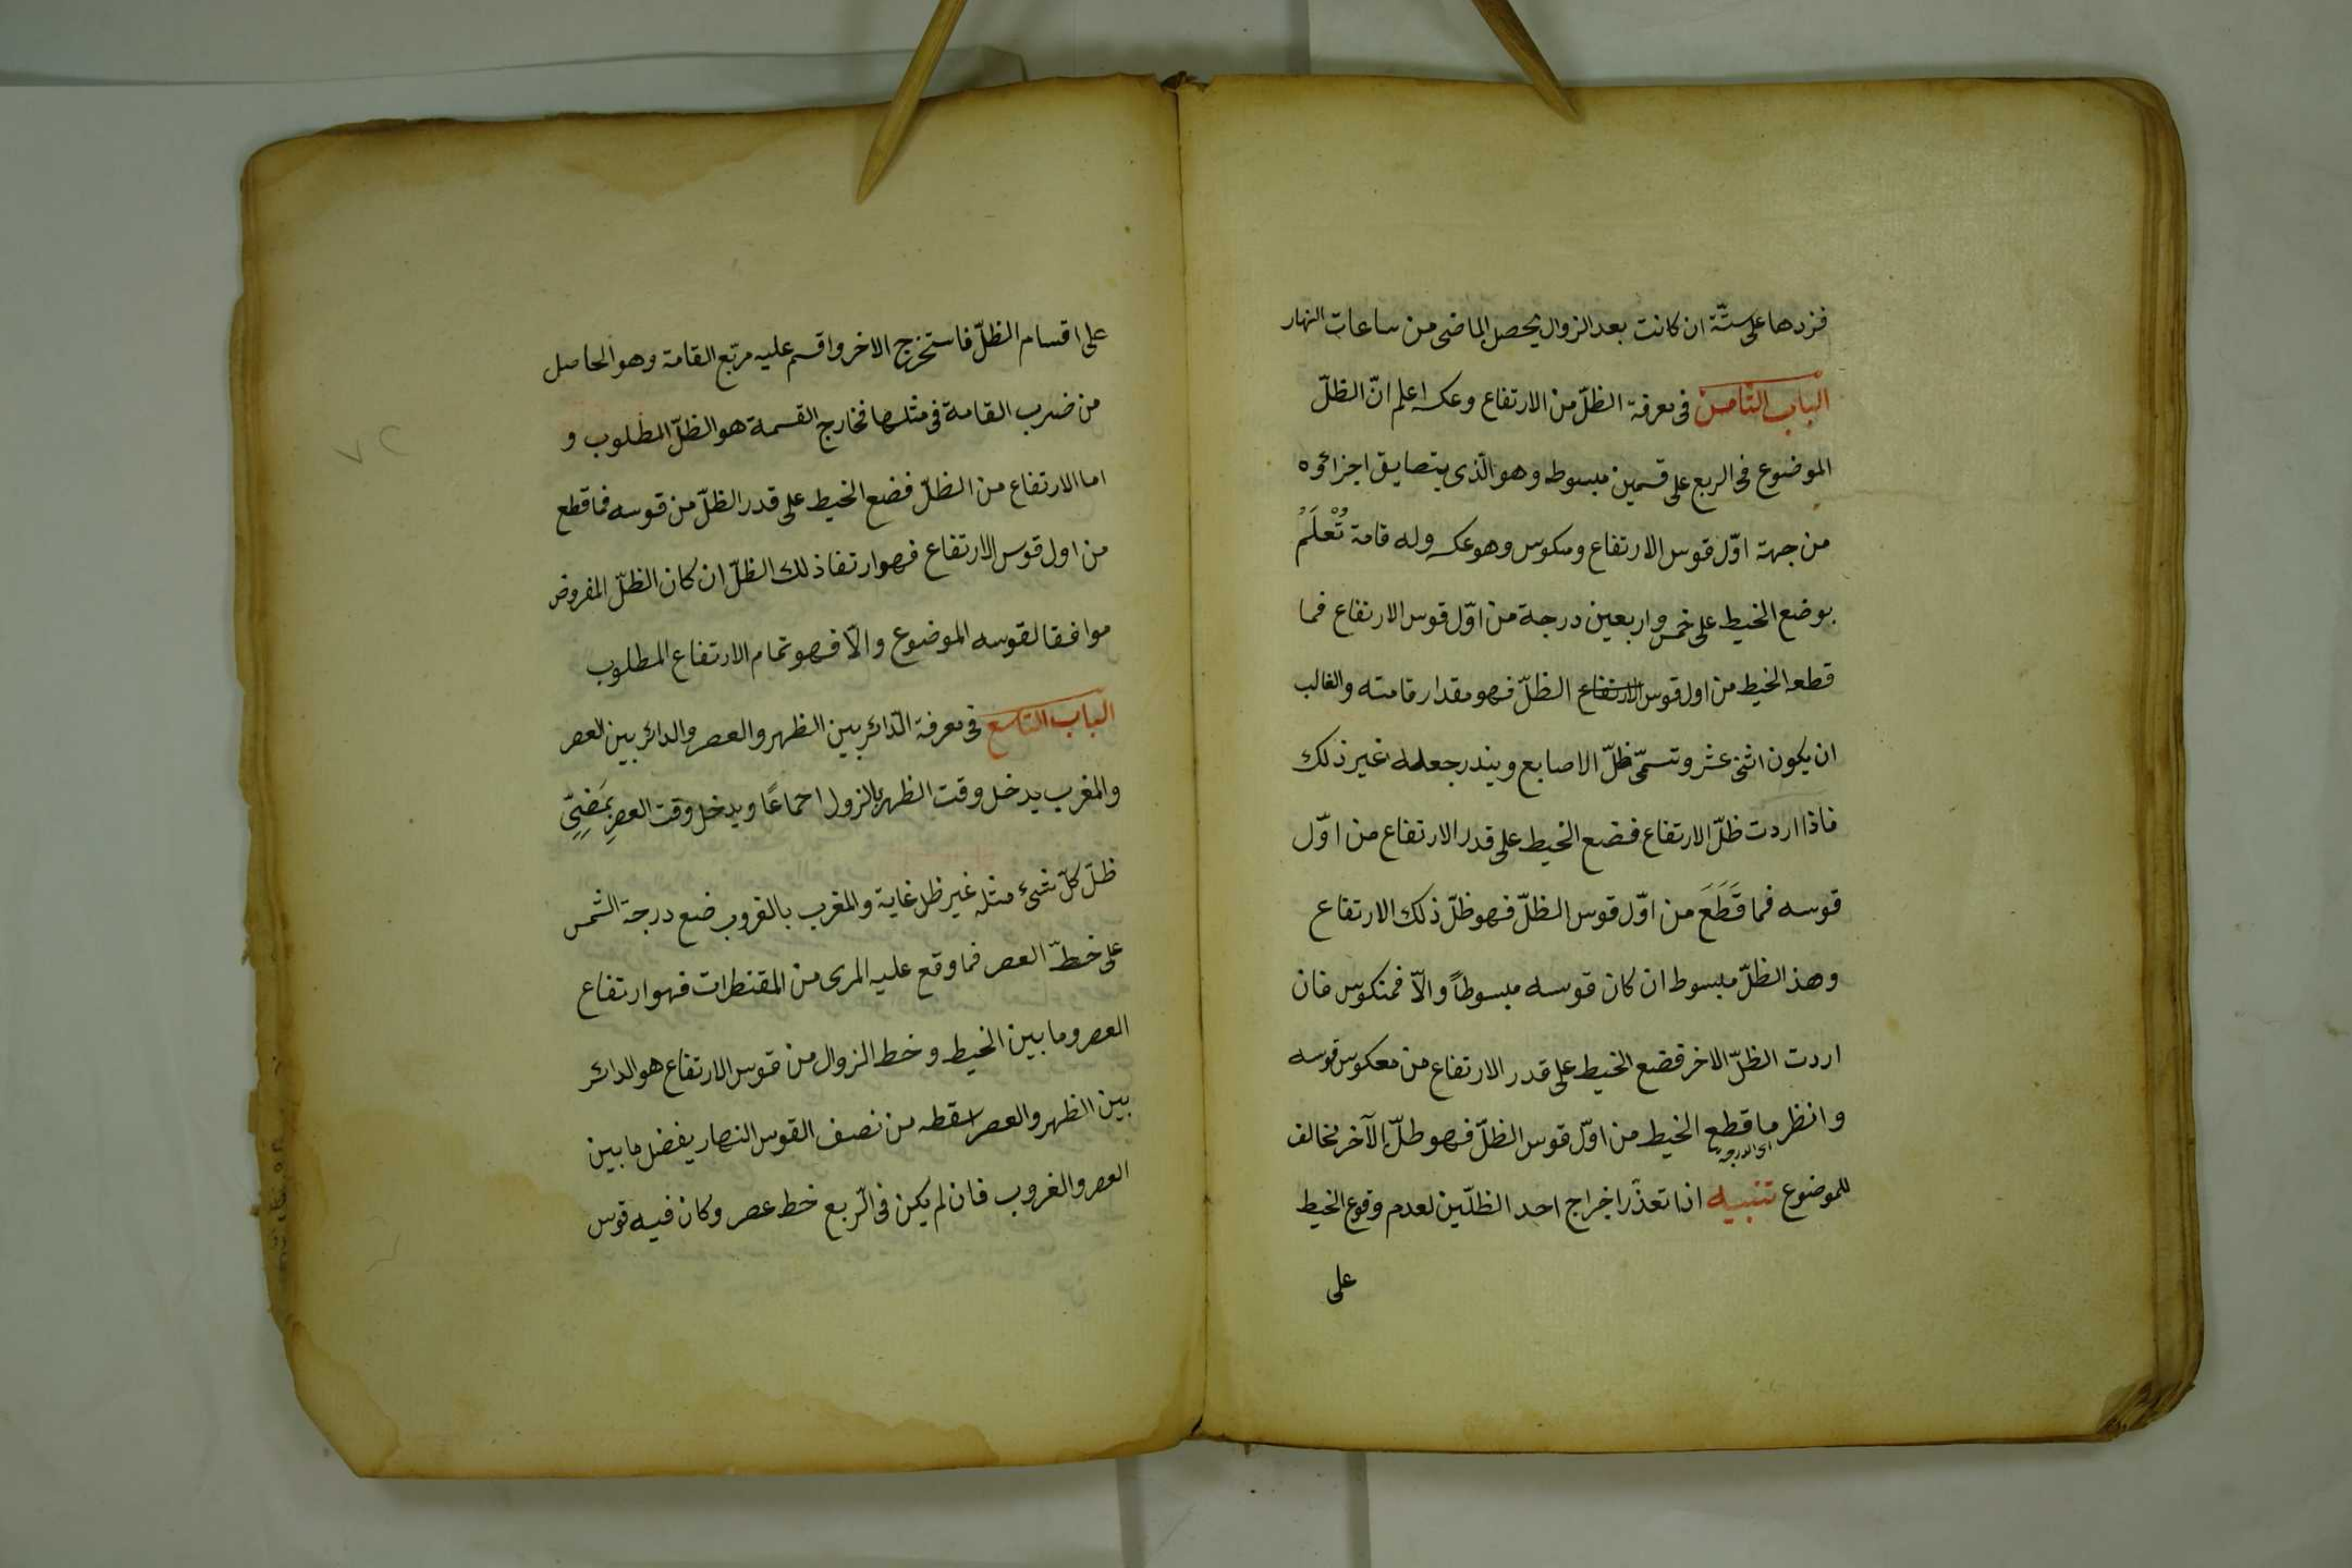 فزدها على ستّة ان كانت بعد الزوال يحصل الماضى من ساعات النهار
الباب الثامن فى معرفة الظلّ من الارتفاع وعكسه اعلم انّ الظلّ
الموضوع فى الربع على قسمين مبسوط وهو الّذى يتضايق اجزائوه
من جهة اوّل قوس الارتفاع ومنكوس وهو عكسه وله قامة تُعْلَمُ
بوضع الخيط على خمس واربعين درجة من اوّل قوس الارتفاع فما
قطعه الخيط من اول قوس الارتفاع الظلّ فهو مقدار قامته والغالب
ان يكون اثنى عشر وتسمّى ظلّ الاصابع ويندر جعله غير ذلك
فاذا اردت ظلّ الارتفاع فضع الخيط على قدر الارتفاع من اوّل
قوسه فما قَطَعَ من اوّل قوس الظلّ فهو ظلّ ذلك الارتفاع
وهذ الظلّ مبسوط ان كان قوسه مبسوطاً والّا فمنكوس فان
اردت الظلّ الاخر فضع الخيط على قدر الارتفاع من معكوس قوسه
وانظر ما قطع الخيط من اوّل قوس الظلّ فهو ظلّ الآخر مخالف
للموضوع تنبيه اذا تعذّر اخراج احد الظلّين لعدم وقوع الخيط
على
على اقسام الظلّ فاستخرج الاخر واقسم عليه مربّع القامة وهو الحاصل
من ضرب القامة فى مثلها فخارج القسمة هو الظلّ المطلوب و
اما الارتفاع من الظلّ فضع الخيط على قدر الظلّ من قوسه فما قطع
من اول قوس الارتفاع فهو ارتفاذ لك الظلّ ان كان الظلّ المفروض
موافقا لقوسه الموضوع والّا فهو تمام الارتفاع المطلوب
الباب التاسع فى معرفة الدّائر بين الظهر والعصر والدائر بين العصر
والمغرب يدخل وقت الظهر بالزول اجماعًا ويدخل وقت العصرِ بمَضىِّ
ظلّ كلّ شىء مثله غير ظل غاية والمغرب بالغروب ضع درجة الشمس
على خطّ العصر فما وقع عليه المرى من المقنطرات فهو ارتفاع
العصر وما بين الخيط وخط الزوال من قوس الارتفاع هو الدائر
بين الظهر والعصر اسقطه من نصف القوس النهار يفضل ما بين
العصر والغروب فان لم يكن فى الّربع خط عصر وكان فيه قوس